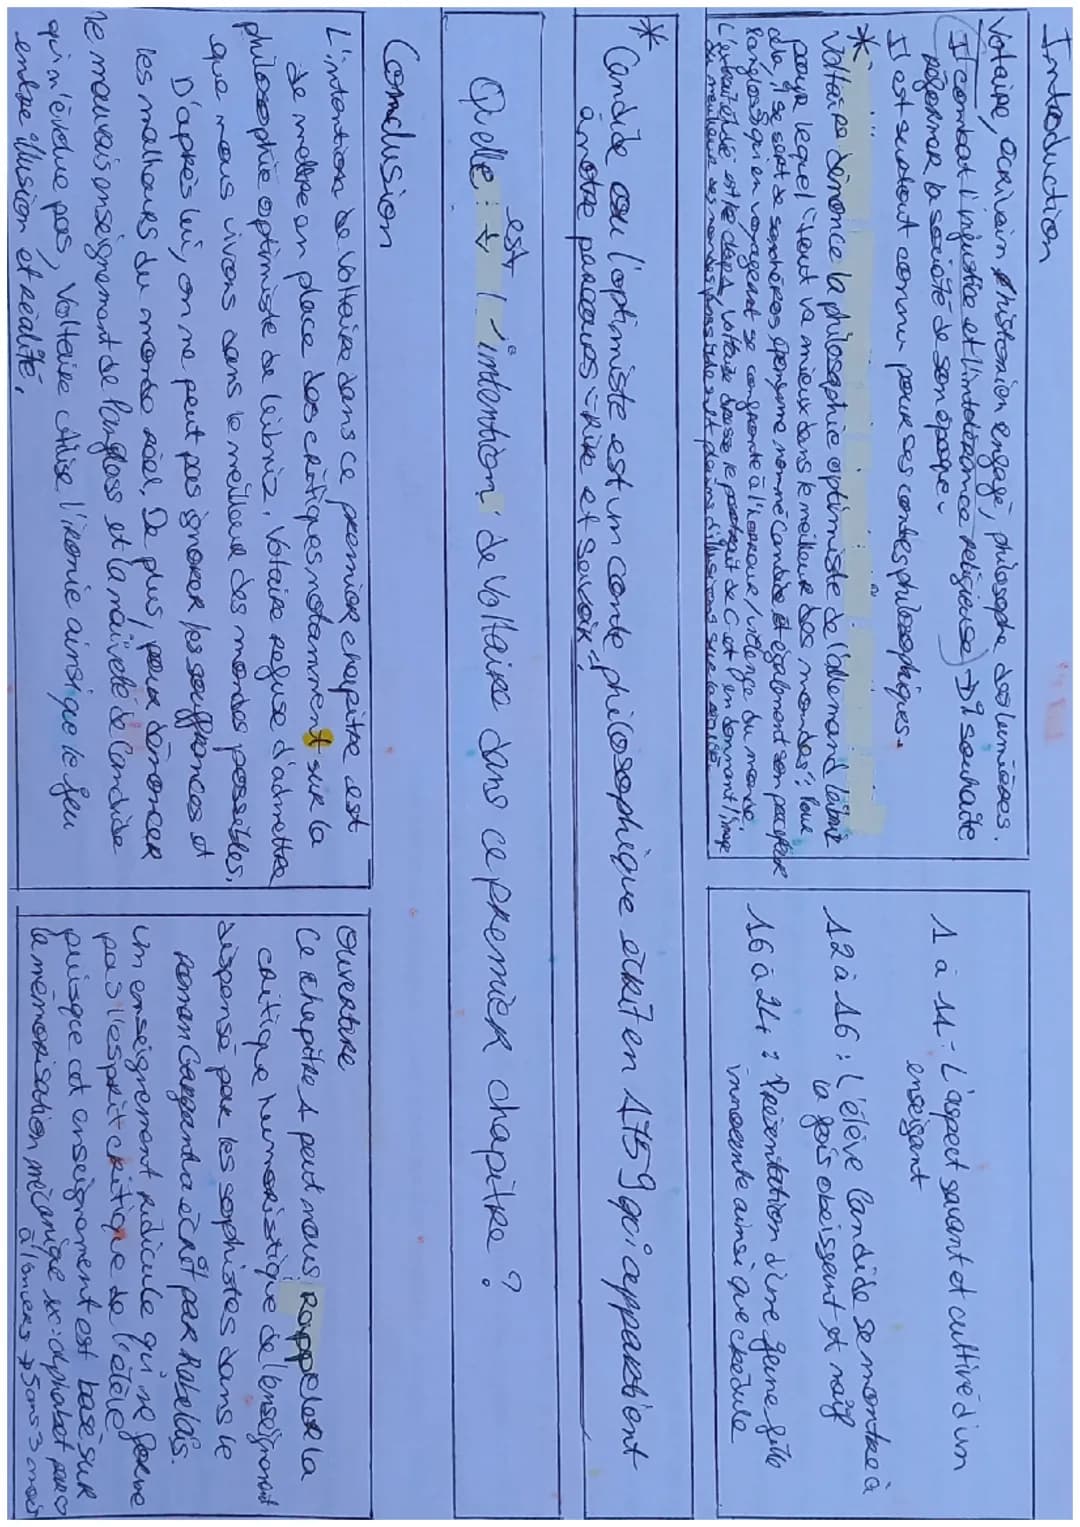 Introduction
Voltaire, écrivain & historien engagé, philosophe des lumières.
Il combat l'injustice et l'intolérance religieuse → Il souhaite
réformer la société de son époque.
Il est surtout connu pour ses contes philosophiques.
* Voltaire dénonce la philosophie optimiste de l'allemand
pour lequel "tout va mieux dans le meilleur des mondes". Pour
il se sert de son héros éponyme nommé Candide et également son précepteur
Pangloss qui en voyageant se confronte à l'horreur / violence du monde.
Voltaire dresse le portrait de C et en donnant l'image
du meilleur des mondes
1 à 11 - L'aspect savant et cultivé d'un
enseignant
12 à 16 : L'élève Candide se montre à
la fois obeissant et naïf
16 à 24 : Présentation d'une jeune fille
innocente ainsi que crédule
* Candide ou l'optimiste est un conte philosophique écrit en 1759 qui appartient
à notre parcours "Rire et savoir".
Quelle est l'intention de Voltaire dans ce premier chapitre ?
Conclusion
L'intention de Voltaire dans ce premier chapitre est
de mettre en place des critiques notamment sur la
philosophie optimiste de Leibniz. Voltaire refuse d'admettre
que nous vivons dans le meilleur des mondes possibles.
D'après lui, on ne peut pas ignorer les souffrances et
les malheurs du monde réel. De plus, pour dénoncer
le mauvais enseignement de Pangloss et la naïveté de Candide
qui n'évolue pas, Voltaire utilise l'ironie ainsi que le jeu
entre illusion et réalité.
Ouverture
Ce chapitre 1 peut nous rappeler la
critique humoristique de l'enseignement
dispensé par les sophistes dans le
roman Gargantua écrit par Rabelais.
Un enseignement ridicule qui ne forme
pas l'esprit critique de l'élève
puisque cet enseignement est basé sur
la mémorisation mécanique ex: alphabet par ♡
à l'envers → 5 ans 3 mois